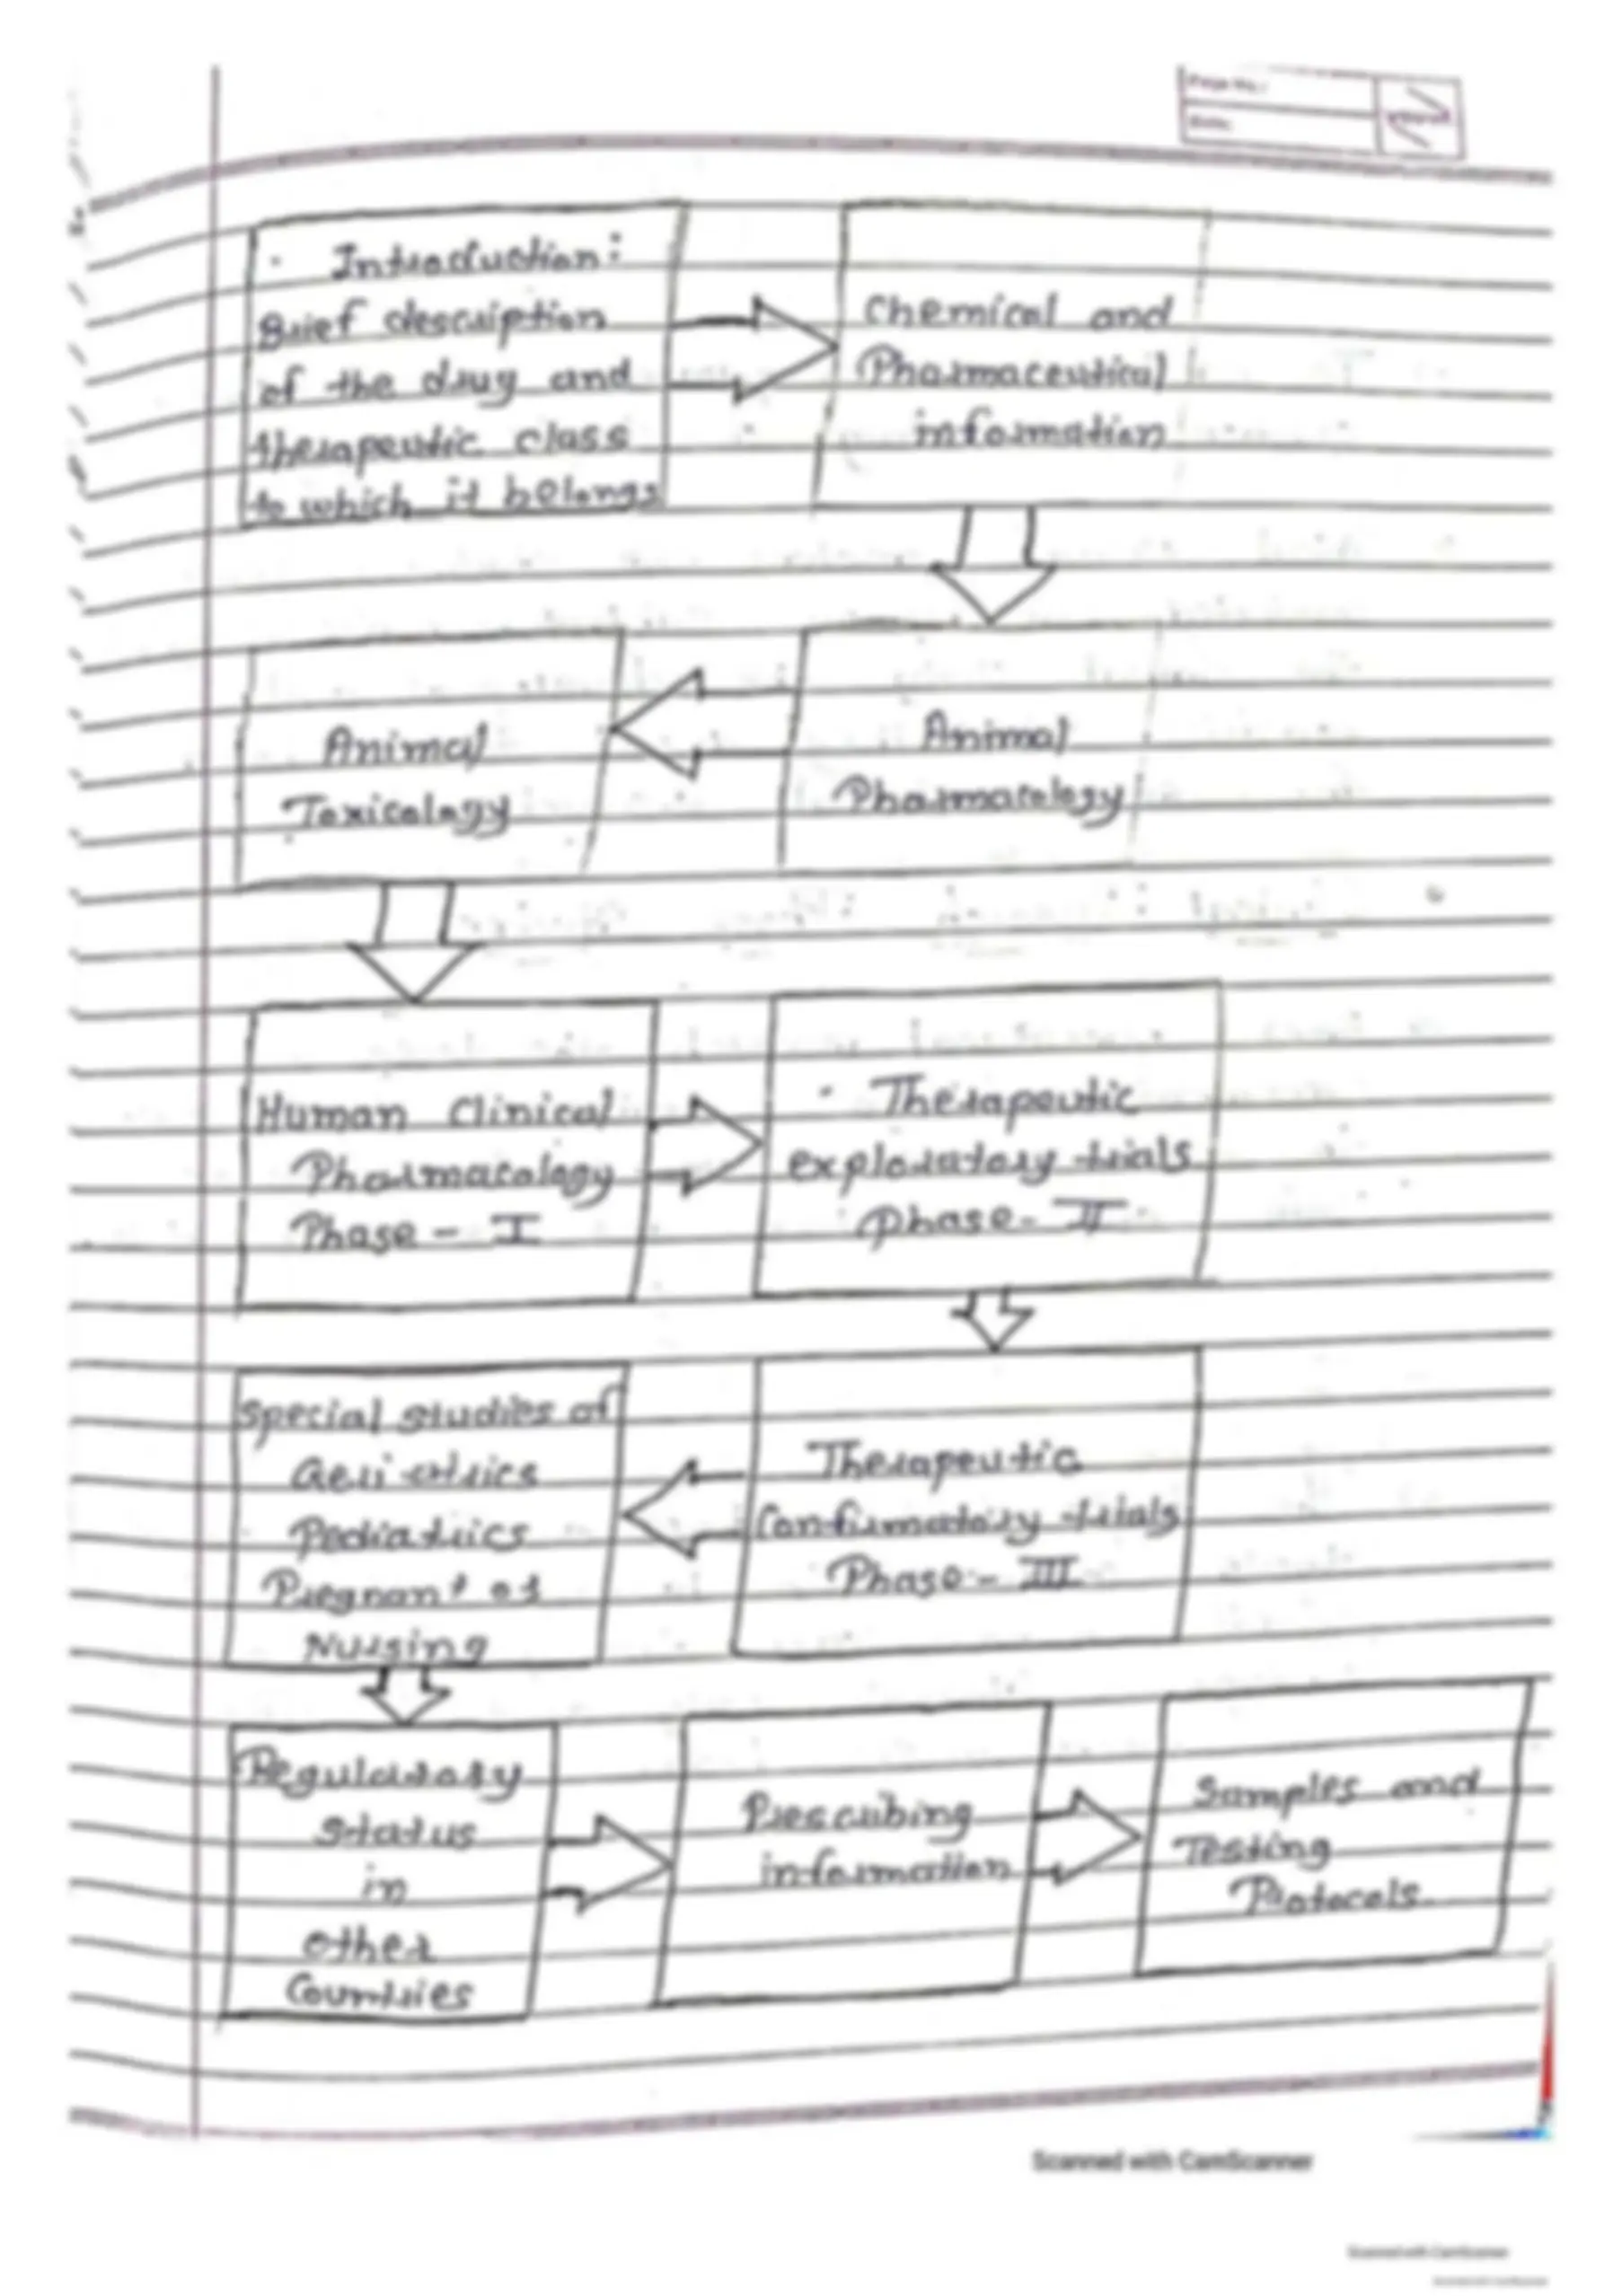 Page No.:
Date:
Introduction:
Brief description
of the drug and
therapeutic class
to which it belongs
Chemical and
Pharmaceutical
information
Animal
Pharmacology
Animal
Toxicology
Human Clinical
Pharmacology
Phase - I
Therapeutic
exploratory trials
phase - II
Therapeutic
Confirmatory trials
Phase - III
Special studies of
Geriatrics
Pediatrics
Pregnant or
Nursing
Regulatory
Status
in
other
Countries
Prescribing
information
Samples and
Testing
Protocols.
Scanned with CamScanner
Scanned with CamScanner
Scanned with CamScanner